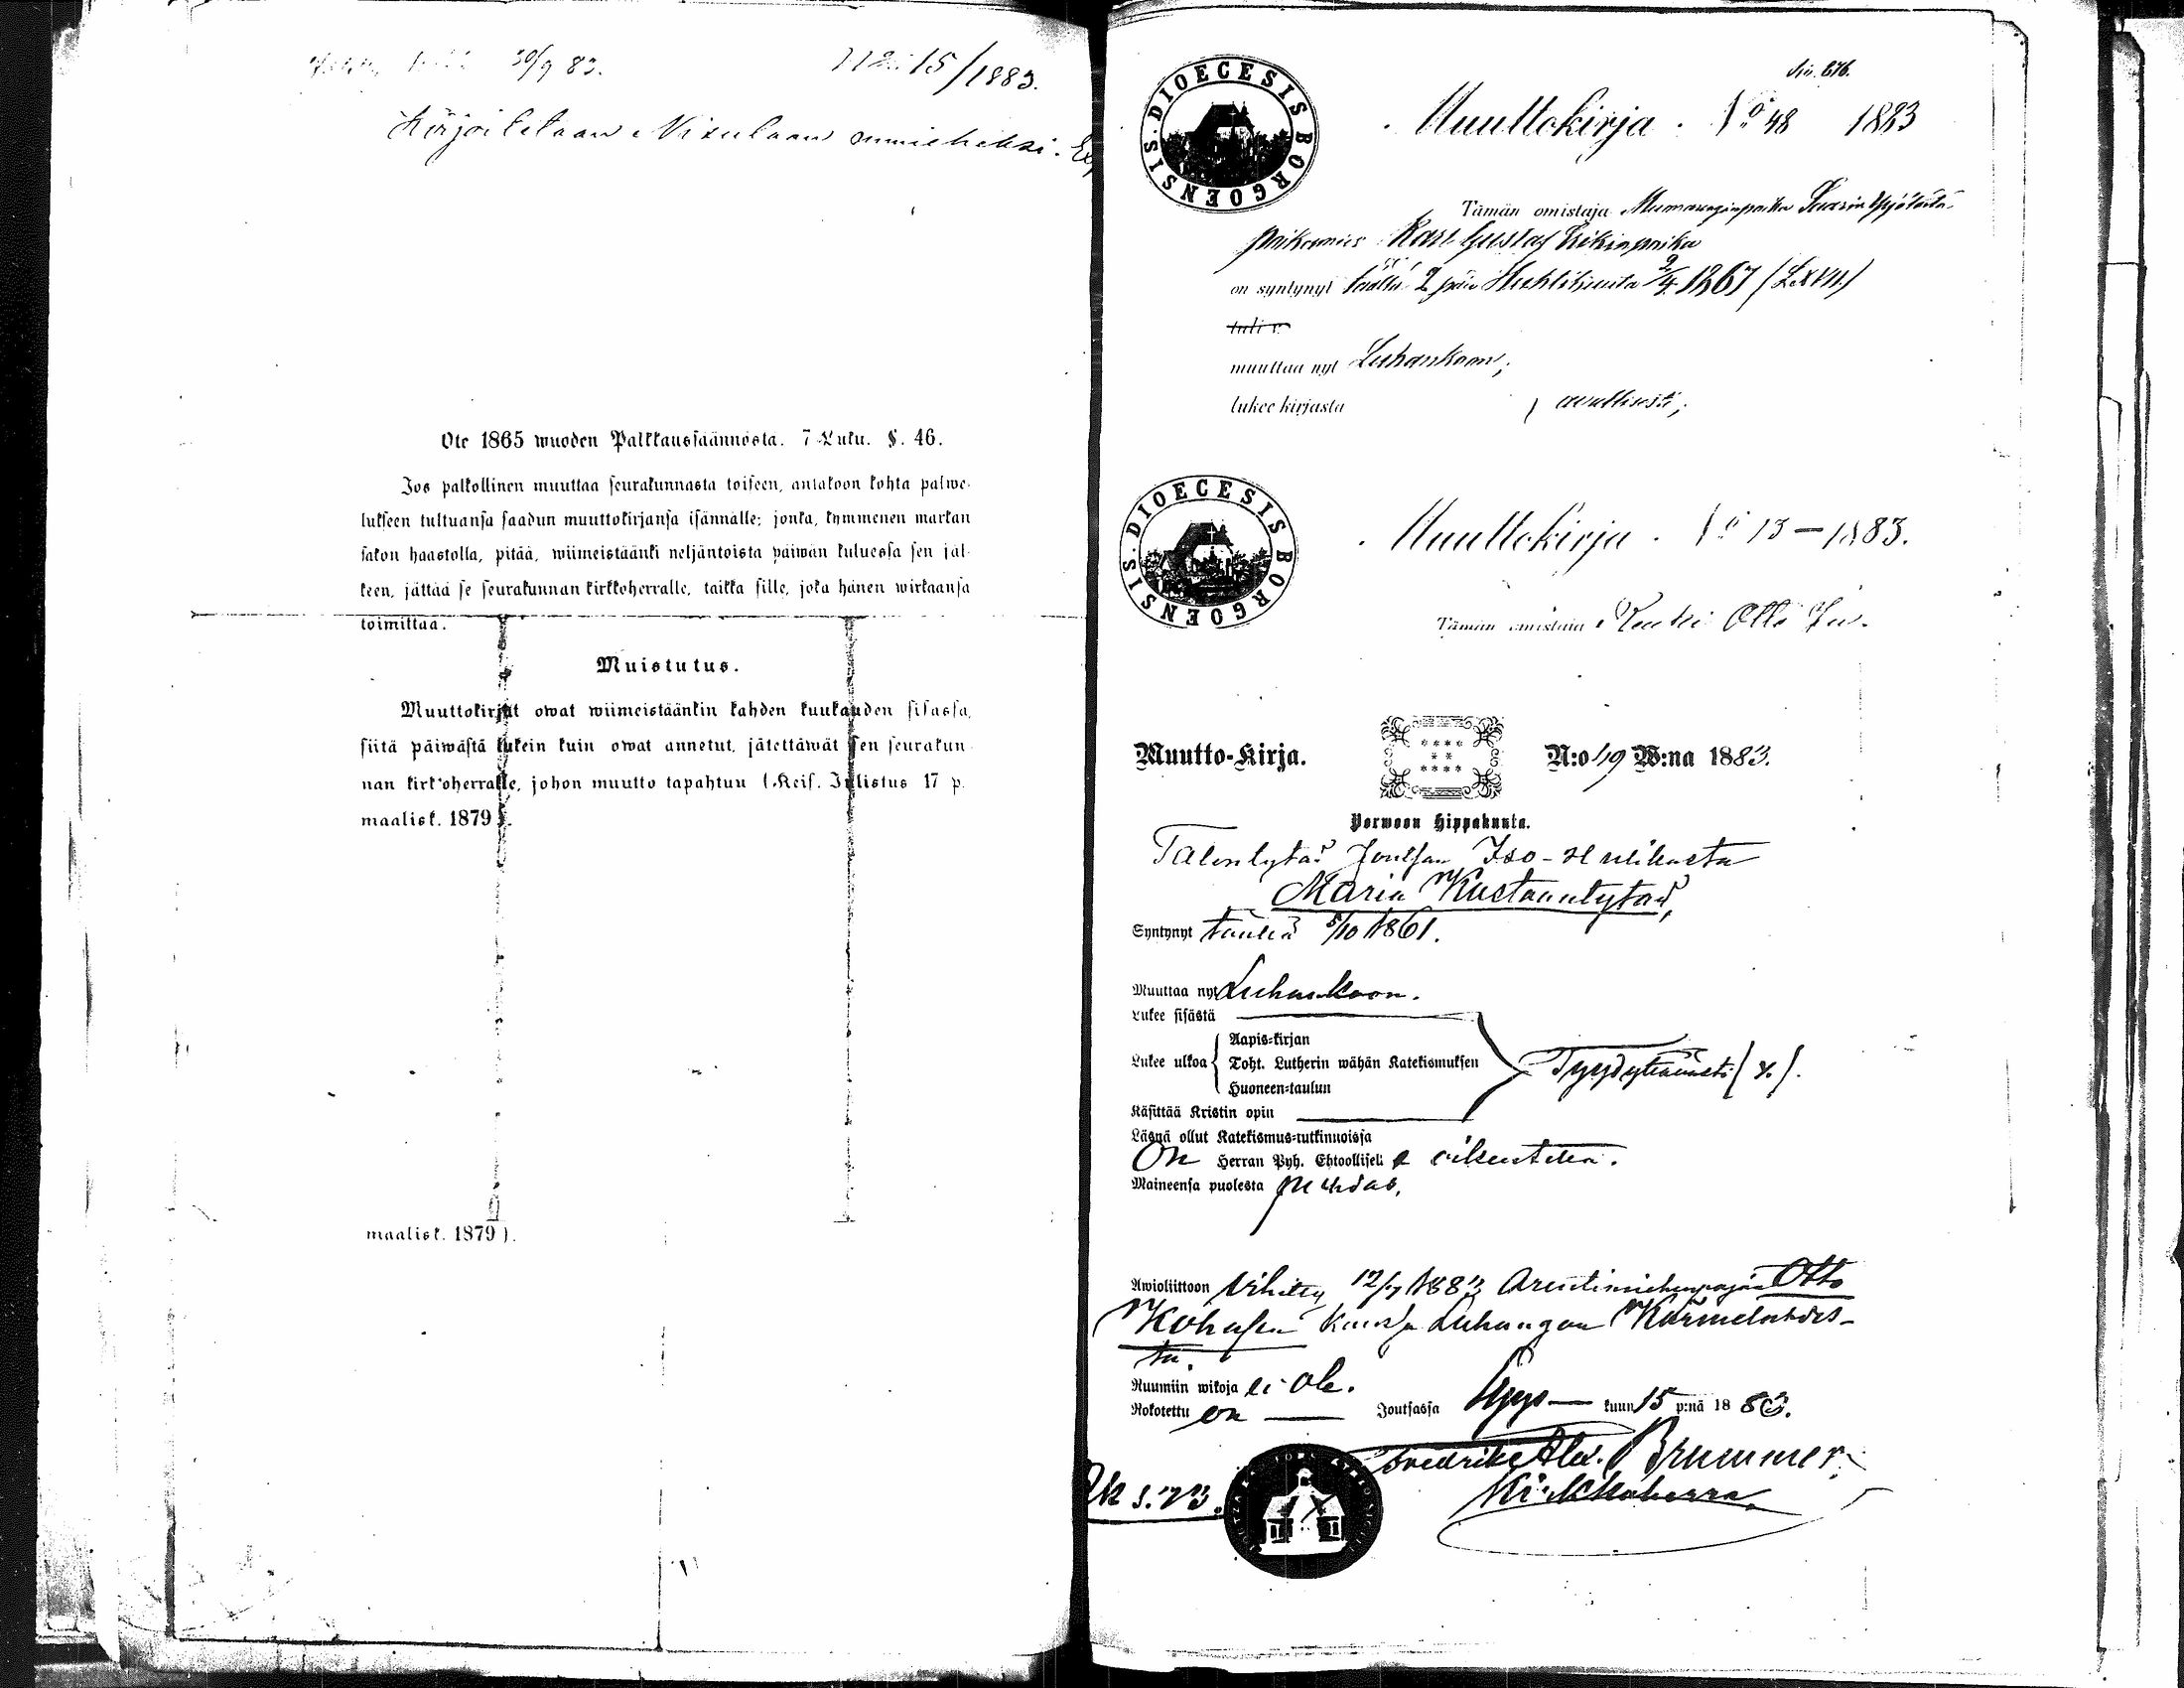 30/9 83.
N:o 15/1883.
Kirjoitetaan Nisulaan
Ote 1865 wuoden Palkkaussäännöstä. 7 Luku. §. 46.
Jos palkollinen muuttaa seurakunnasta toiseen, antakoon kohta palwe-
lukseen tultuansa saadun muuttokirjansa isännälle; jonka, kymmenen markan
sakon haastolla, pitää, wiimeistäänki neljäntoista päiwän kuluessa sen jäl-
keen, jättää se seurakunnan kirkkoherralle, taikka sille, joka hänen wirkaansa
toimittaa.
Muistutus.
Muuttokirjat owat wiimeistäänkin kahden kuukauden sisässä,
siitä päiwästä lukein kuin owat annetut, jätettäwät sen seurakun-
nan kirkkoherralle, johon muutto tapahtuu (Keis. Julistus 17 p.
maalisk. 1879).
maalisk. 1879).
Siv. 676.
DIOECESIS BORGOENSIS
Muuttokirja. No 48 1883
Tämän omistaja
Karl Gustaf Erikinpoika
on syntynyt täällä 2 p:nä Huhtikuuta 2/4 1867 (LXVII)
tuli
muuttaa nyt Luhankoon,
lukee kirjasta , awullisesti,
DIOECESIS BORGOENSIS
Muuttokirja. No 13 — 1883.
Tämän omistaja Renki Otto
Muutto-Kirja. N:o 49 W:na 1883.
Porwoon Hippakunta.
Talontytär Joutsan Iso-
Maria Kustaantytär,
Syntynyt täällä 5/10 1861.
Muuttaa nyt Luhankoon.
Lukee sisästä
Lukee ulkoa
Aapis-kirjan
Toht. Lutherin wähän Katekismuksen
Huoneen-taulun
Tyydyttäwästi
Käsittää Kristin opin
Läsnä ollut Katekismus-tutkinnoissa
On Herran Pyh. Ehtoollisella oikeutettu.
Maineensa puolesta puhdas,
Awioliittoon Vihitty 12/7 1883 Arentimiehenpojan Otto
kanssa Luhangan
ta.
Ruumiin wikoja ei ole.
Rokotettu on — Joutsassa Syys— kuun 15 p:nä 1883.
Fredrik Alex. Brummer,
Kirkkoherra.